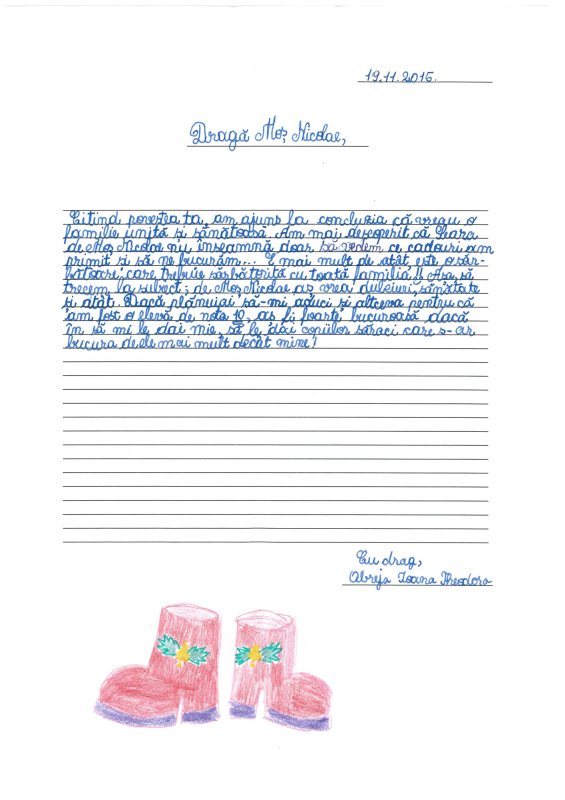 19.11.2015.
Dragă Moș Nicolae,
Citind povestea ta, am ajuns la concluzia că vreau o
familie unită și sănătoasă. Am mai descoperit că Seara
de Moș Nicolae nu înseamnă doar să vedem ce cadouri am
primit și să ne bucurăm... E mai mult de atât este o săr-
bătoare, care trebuie sărbătorită cu toată familia!! Așa, să
trecem la subiect; de Moș Nicolae aș vrea dulciuri, sănătate
și atât. Dacă plănuiai să-mi aduci și altceva pentru că
am fost o elevă de nota 10, aș fi foarte bucuroasă dacă
în să mi le dai mie, să le dai copiilor săraci care s-ar
bucura de ele mai mult decât mine!
Cu drag,
Abreja Ioana Theodora